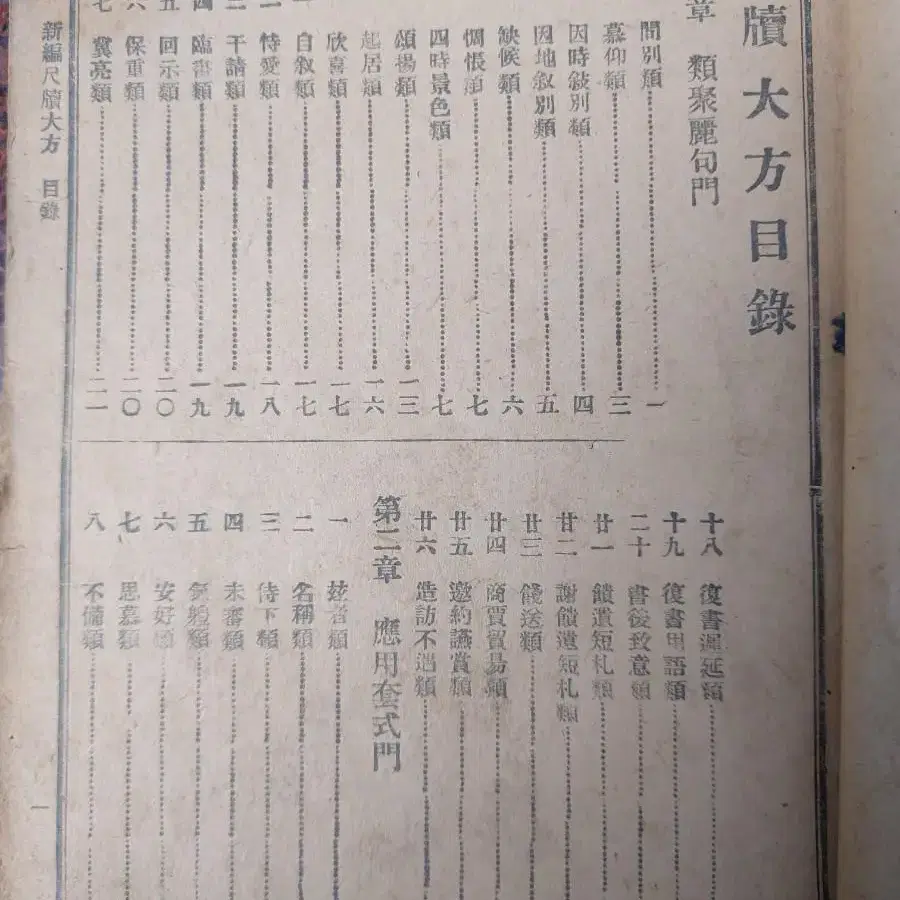 牘大方目錄
章 類聚麗句門
間別類 一
慕仰類 三
因時敍別類 四
因地敍別類 五
缺候類 六
惆悵類 七
四時景色類 七
頌揚類 一三
起居類 一六
欣喜類 一七
自敍類 一七
恃愛類 一八
干請類 一九
四 臨書類 一九
五 回示類 二〇
六 保重類 二〇
七 冀亮類 二一
十八 復書遲延類
十九 復書用語類
二十 書後致意類
廿一 饋遺短札類
廿二 謝饋遺短札類
廿三 餞送類
廿四 商賈貿易類
廿五 邀約讌賞類
廿六 造訪不遇類
第二章 應用套式門
一 玆者類
二 名稱類
三 侍下類
四 未審類
五
六 安好類
七 思慕類
八 不備類
新編尺牘大方 目錄
一